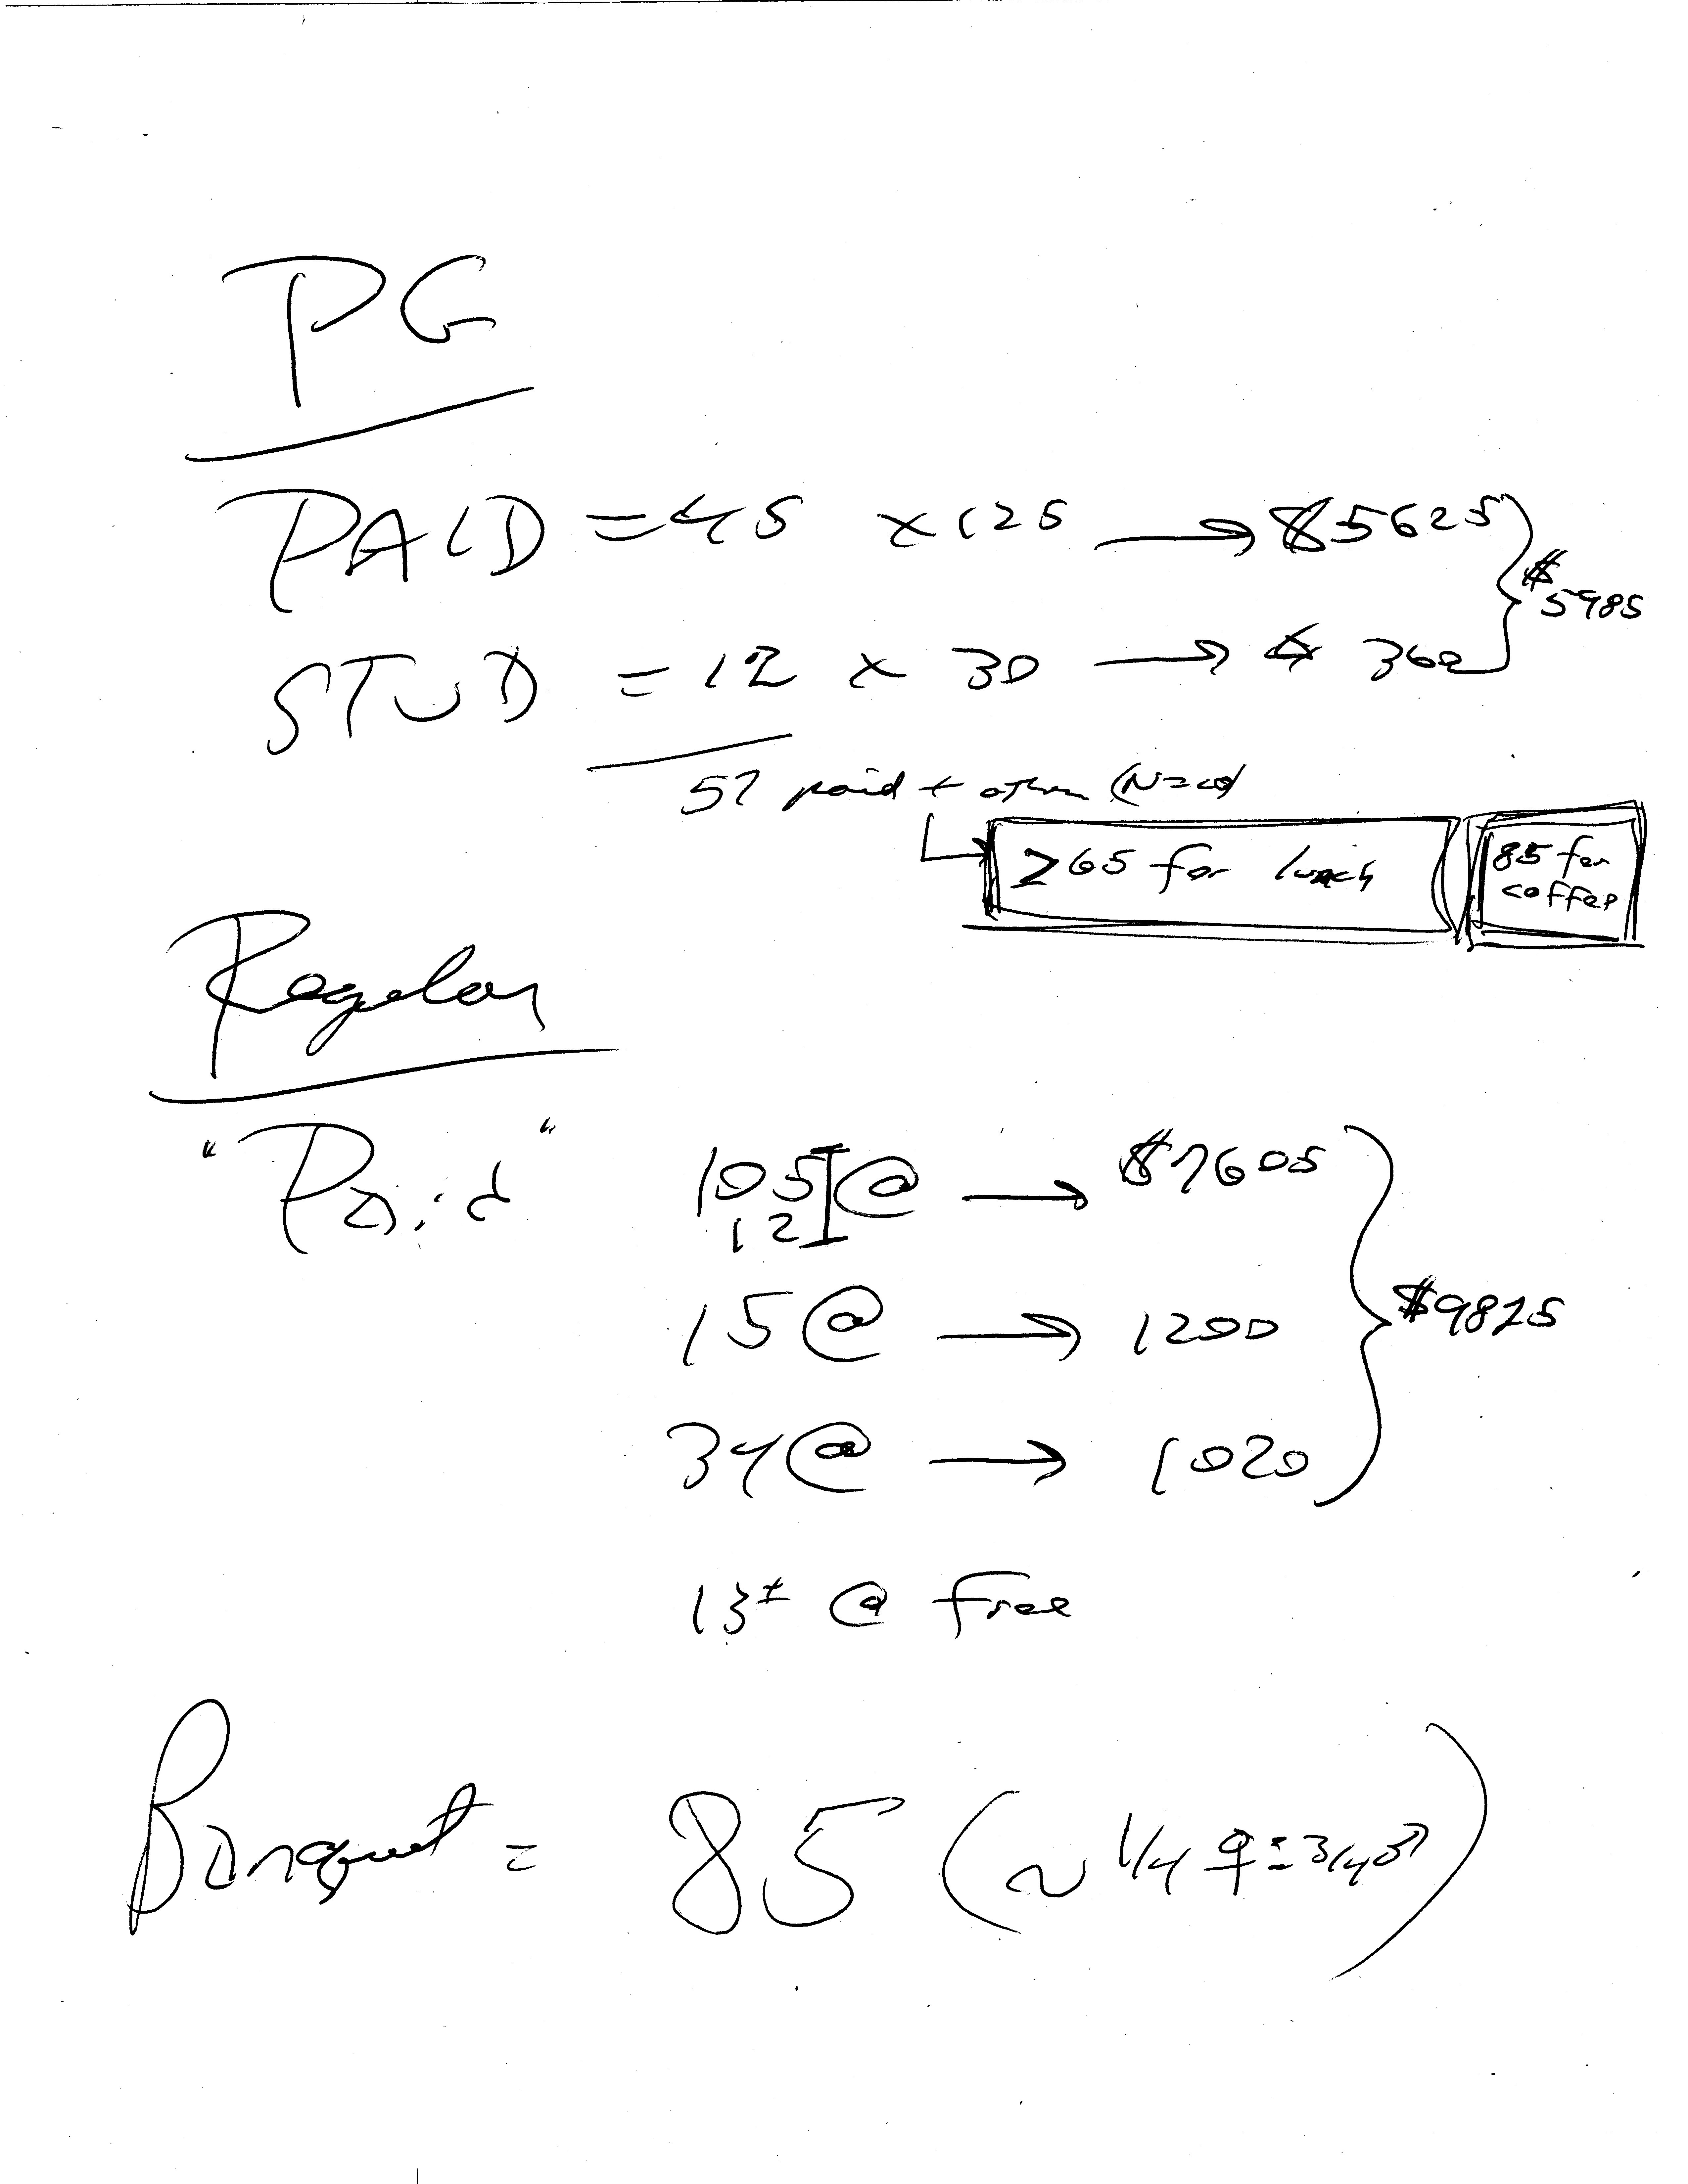 PG
PAID = 45 x 125 → $5625 } $5985
STUD = 12 x 30 → $ 360
57 paid + other
265 for lunch 85 for coffee
Regular
"Paid" 105 @ → $7605
12
15 @ → 1200 } $9825
34 @ → 1020
13± @ free
Banquet = 85 (~ 1/4 ♀ : 3/4 ♂)